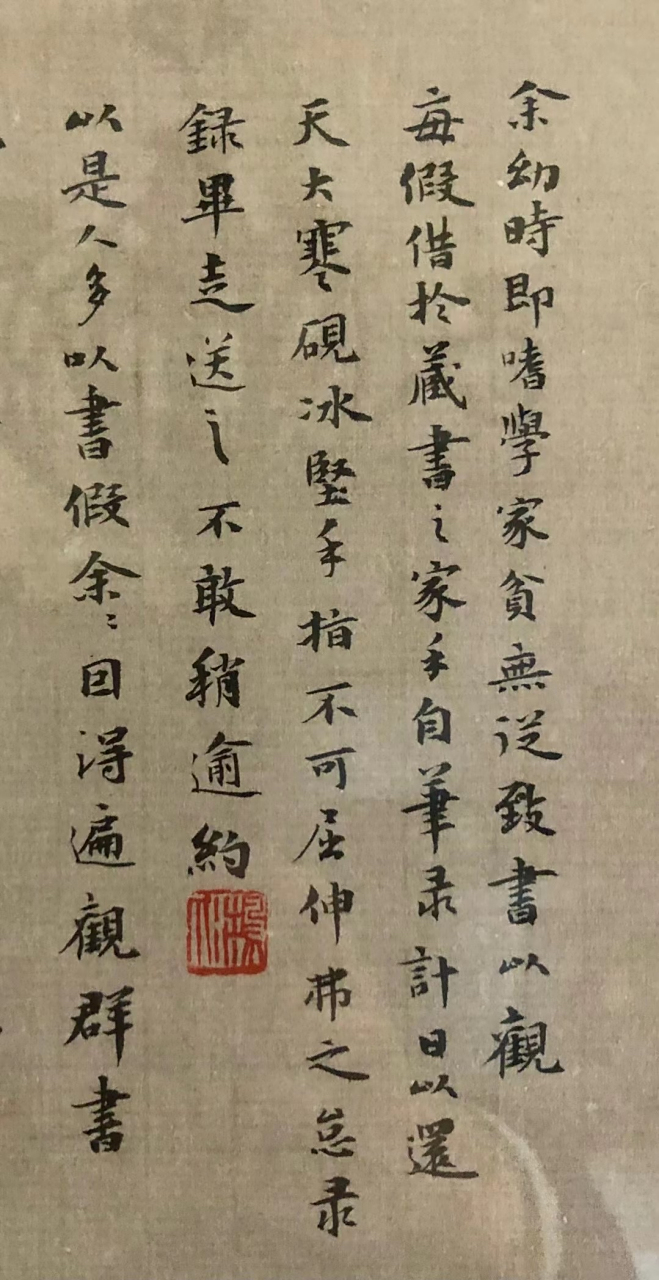 余幼時即嗜學家貧無從致書以觀
每假借於藏書之家手自筆录計日以還
天大寒硯冰堅手指不可屈伸弗之怠录
録畢走送之不敢稍逾約
以是人多以書假余〻因得遍觀群書